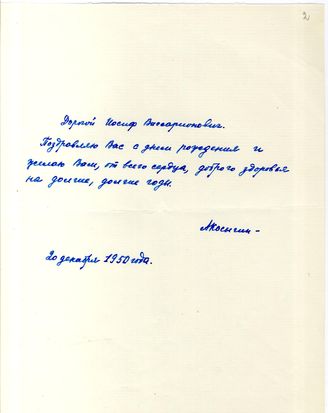 2
Дорогой Иосиф Виссарионович.
Поздравляю Вас с днем рождения и
желаю Вам, от всего сердца, доброго здоровья
на долгие, долгие годы.
АКосыгин-
20 декабря 1950 года.